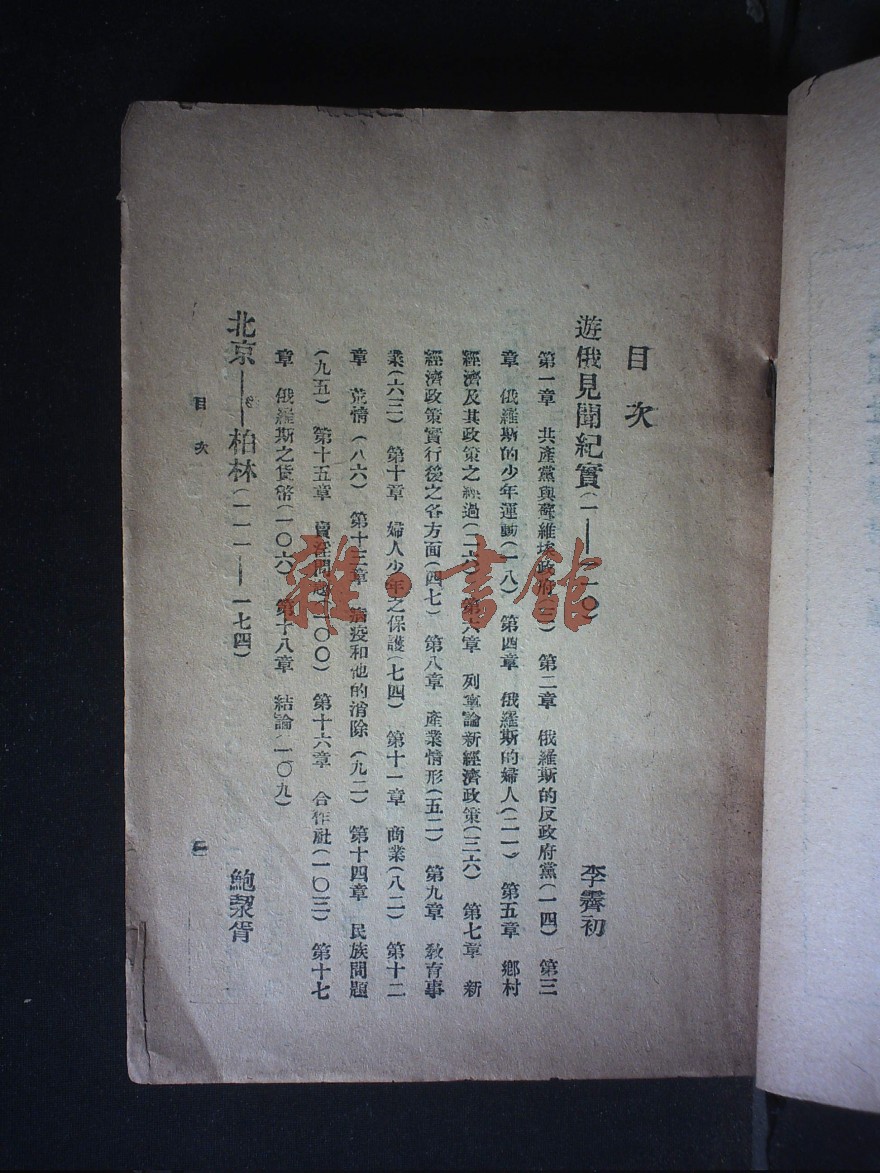 目次
遊俄見聞紀實(一——一一〇) 李霽初
第一章 共產黨與蘇維埃政府(三) 第二章 俄羅斯的反政府黨(一四) 第三
章 俄羅斯的少年運動(一八) 第四章 俄羅斯的婦人(二一) 第五章 鄉村
經濟及其政策之經過(二六) 第六章 列寧論新經濟政策(三六) 第七章 新
經濟政策實行後之各方面(四七) 第八章 產業情形(五二) 第九章 教育事
業(六三) 第十章 婦人少年之保護(七四) 第十一章 商業(八二) 第十二
章 荒情(八六) 第十三章 病疫和他的消除(九二) 第十四章 民族問題
(九五) 第十五章 賣淫問題(一〇〇) 第十六章 合作社(一〇三) 第十七
章 俄羅斯之貨幣(一〇六) 第十八章 結論(一〇九)
北京——柏林(一一一——一七四) 鮑㓗胥
目次
雜·書館